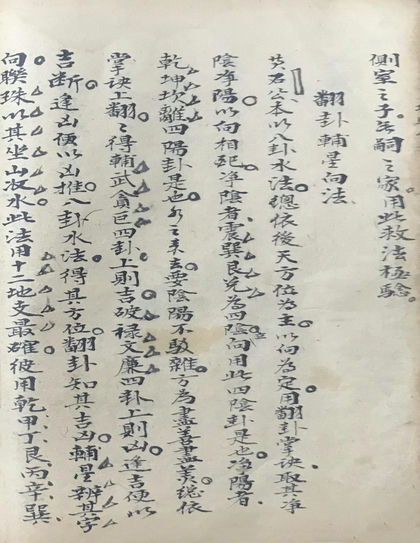 側室之子出嗣之家用此救法極驗
翻卦輔星向法
黃石公本以八卦水法總依後天方位為主以向為定用翻卦掌訣取其净
陰净陽以向相配净陰者震巽艮兌為四陰向用此四陰卦是也净陽者
乾坤坎離四陽卦是也水之来去要陰陽不駁雜方為盡善盡美總依
掌訣上翻之得輔武貪巨四卦上則吉破祿文廉四卦上則凶逢吉便以
吉断逢凶便以凶推八卦水法得其方位翻卦知其吉凶輔星辨其字
向联珠以其坐山放水此法用十二地支最確彼用乾甲丁艮丙辛巽